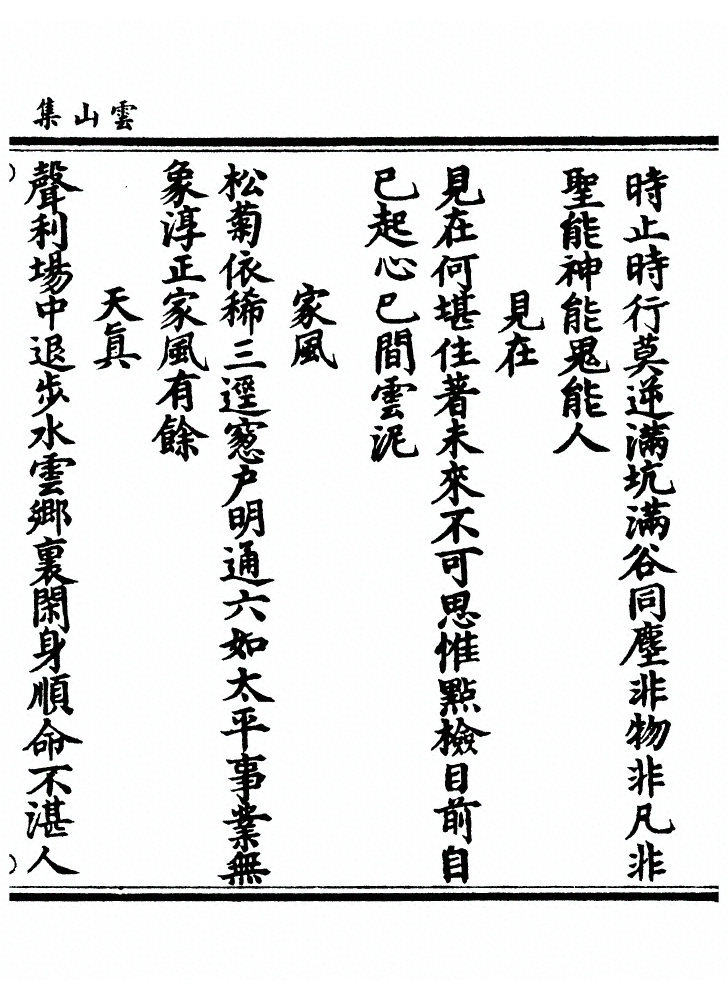 雲山集
時止時行莫逆滿坑滿谷同塵非物非凡非
聖能神能鬼能人
見在
見在何堪住著未來不可思惟點檢目前自
已起心已間雲泥
家風
松菊依稀三逕窻戶明通六如太平事業無
象淳正家風有餘
天眞
聲利場中退步水雲鄉裏閑身順命不湛人